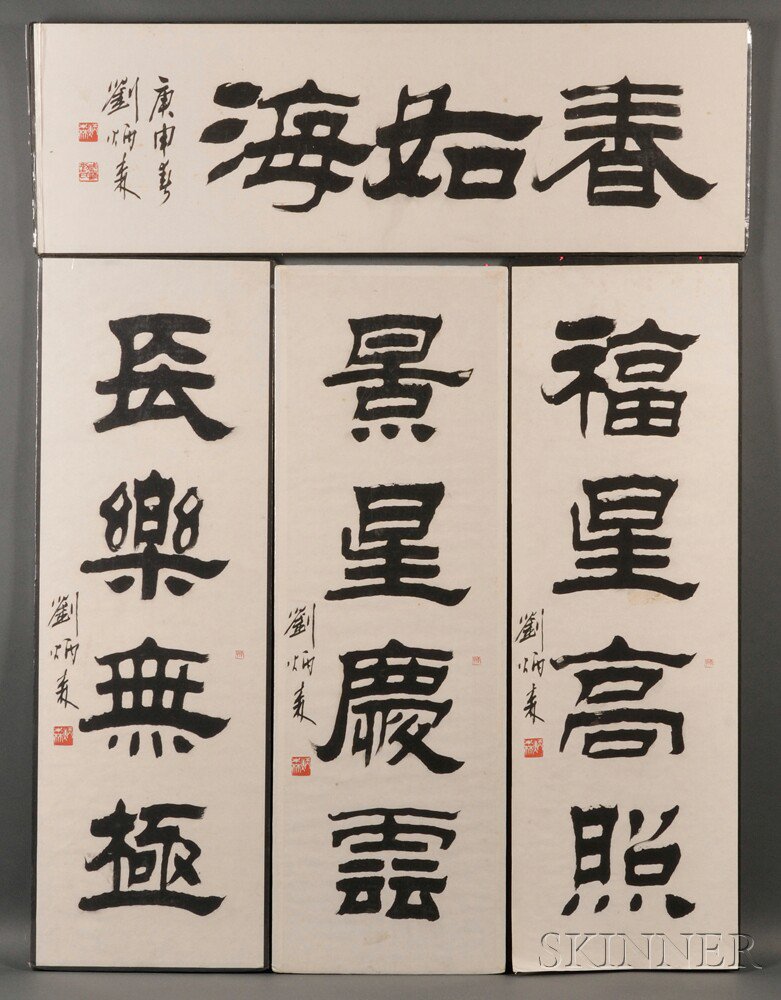 春如海
庚申春
劉炳森
福星高照
劉炳森
景星慶雲
劉炳森
長樂無極
劉炳森
SKINNER